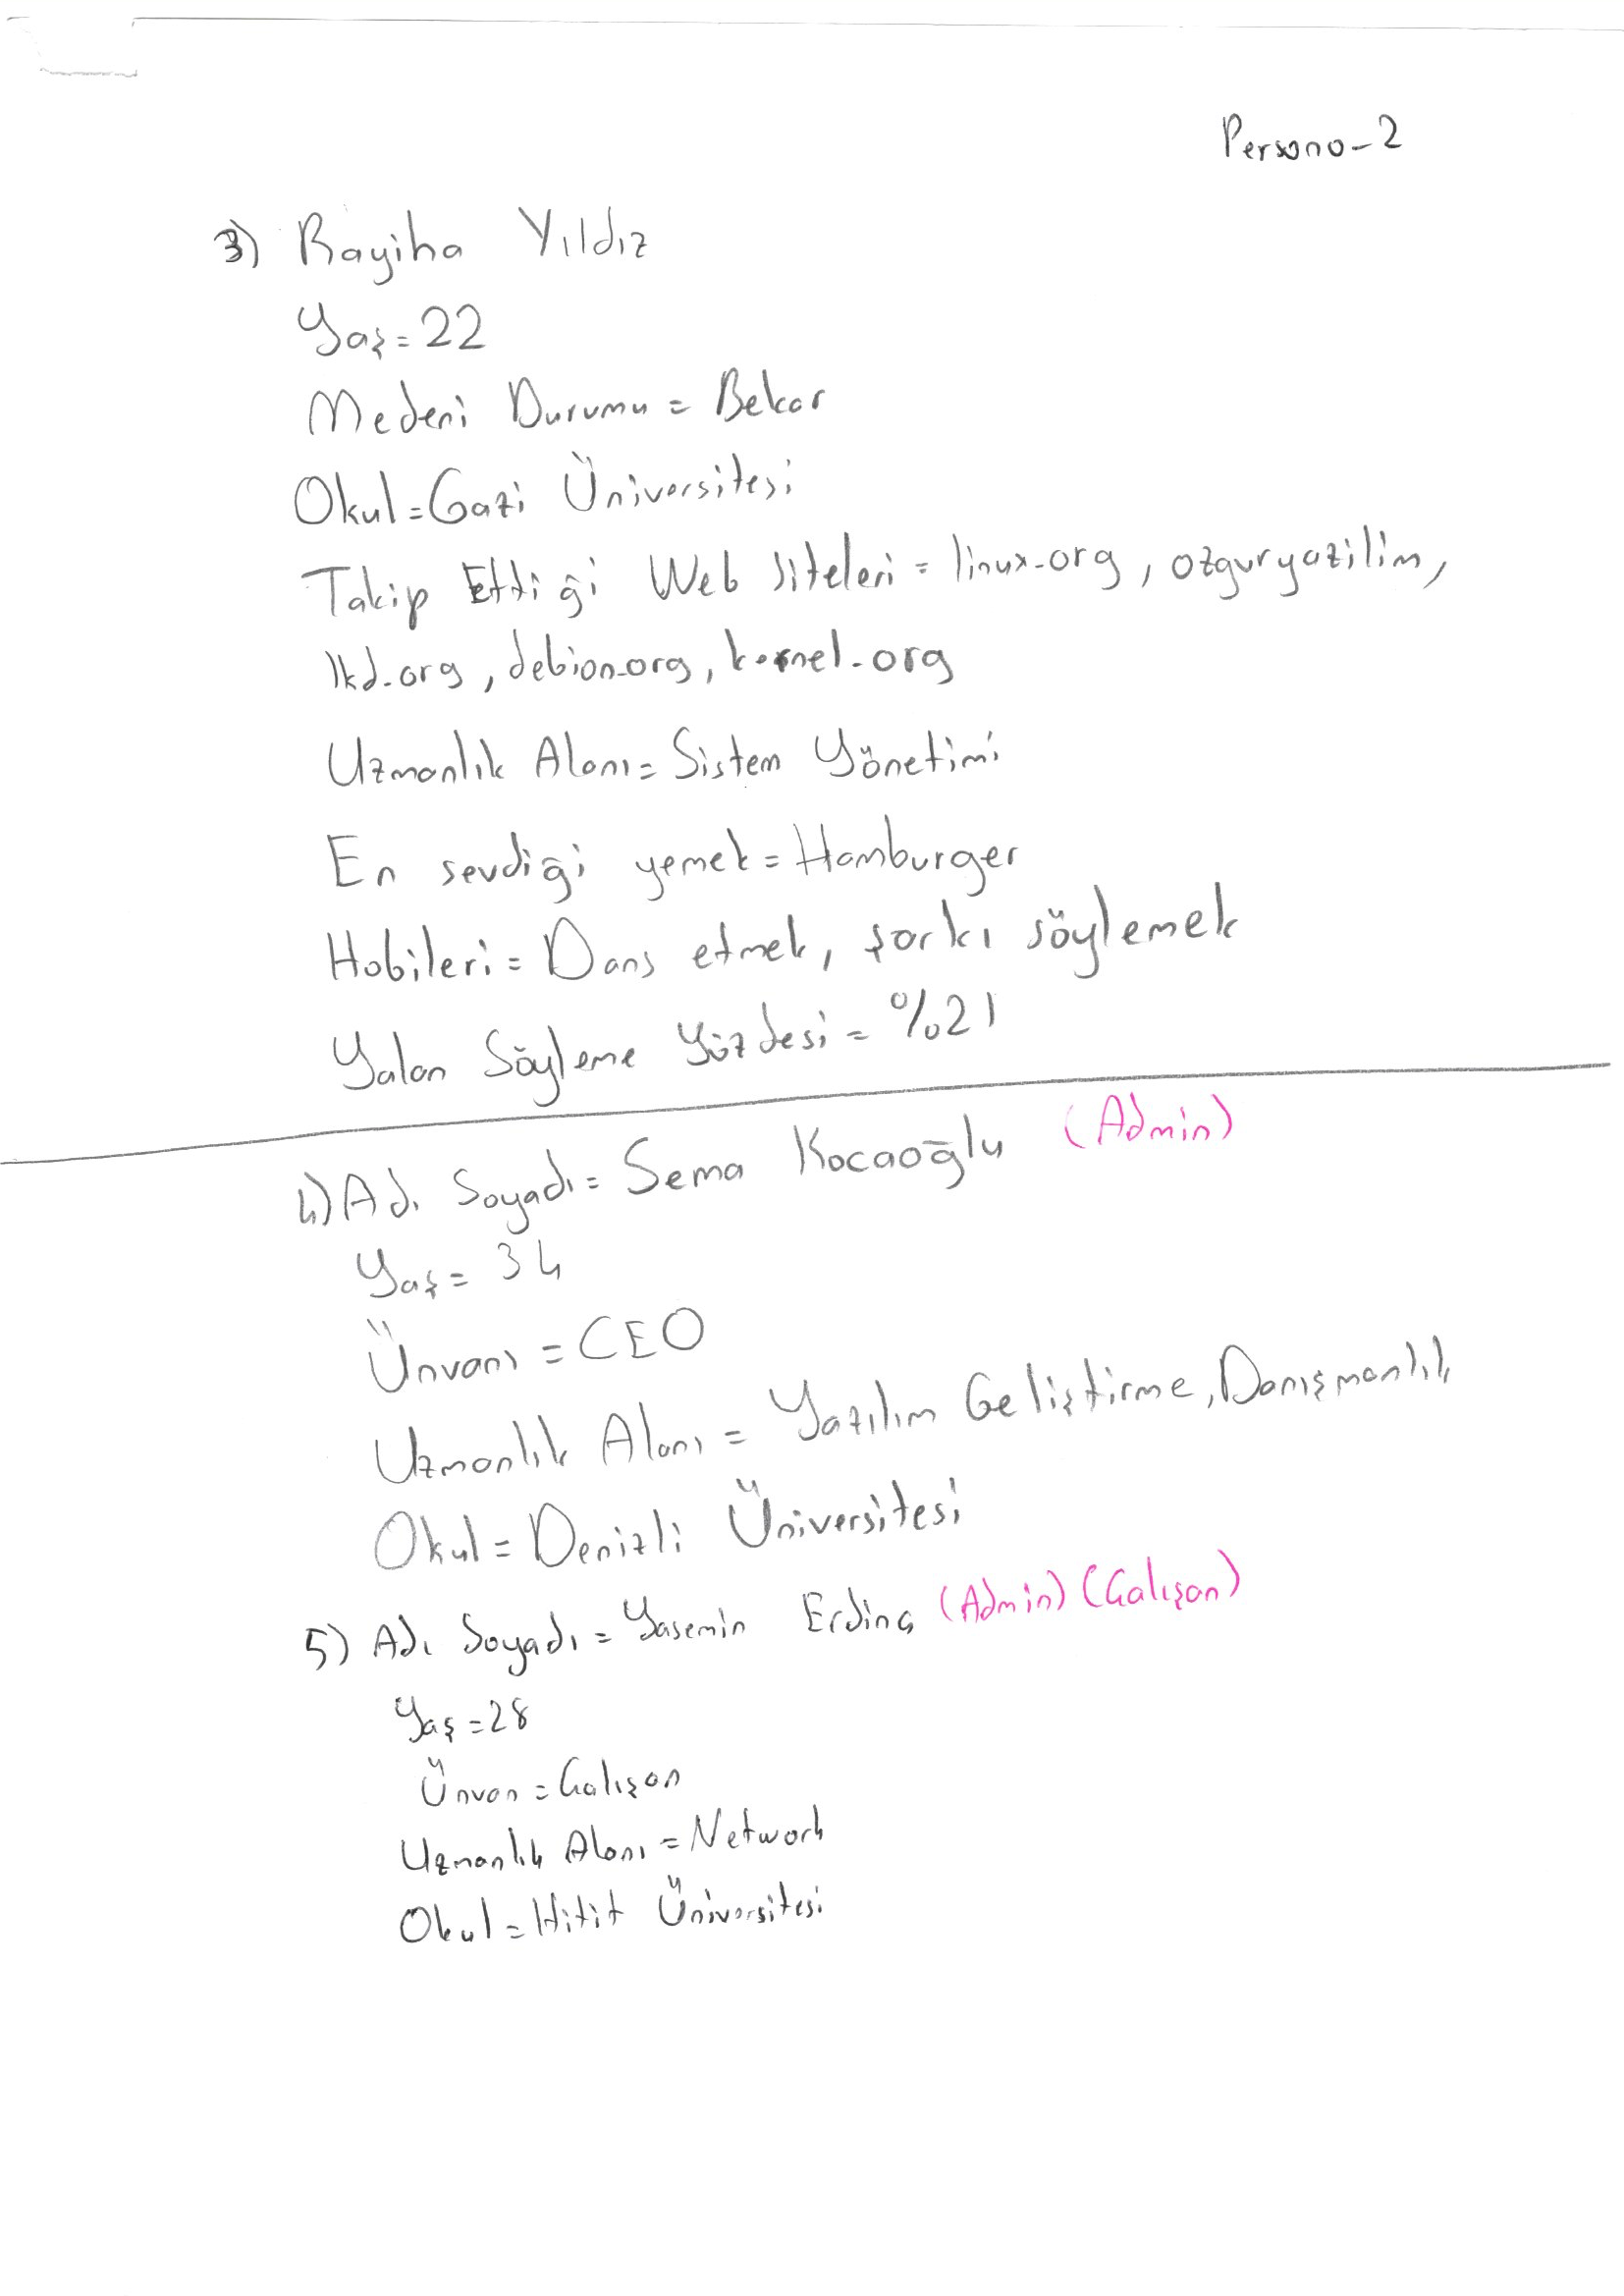 Persona-2
3) Rayiha Yıldız
Yaş=22
Medeni Durumu = Bekar
Okul=Gazi Üniversitesi
Takip Ettiği Web Siteleri = linux.org, ozguryazilim,
lkd.org, debian.org, kernel.org
Uzmanlık Alanı= Sistem Yönetimi
En sevdiği yemek= Hamburger
Hobileri= Dans etmek, şarkı söylemek
Yalan Söyleme Yüzdesi = %21
4) Adı Soyadı= Sema Kocaoğlu (Admin)
Yaş= 34
Ünvanı = CEO
Uzmanlık Alanı = Yazılım Geliştirme, Danışmanlık
Okul= Denizli Üniversitesi
5) Adı Soyadı = Yasemin Erdinç (Admin) (Çalışan)
Yaş=28
Ünvan=Çalışan
Uzmanlık Alanı = Network
Okul=Hitit Üniversitesi